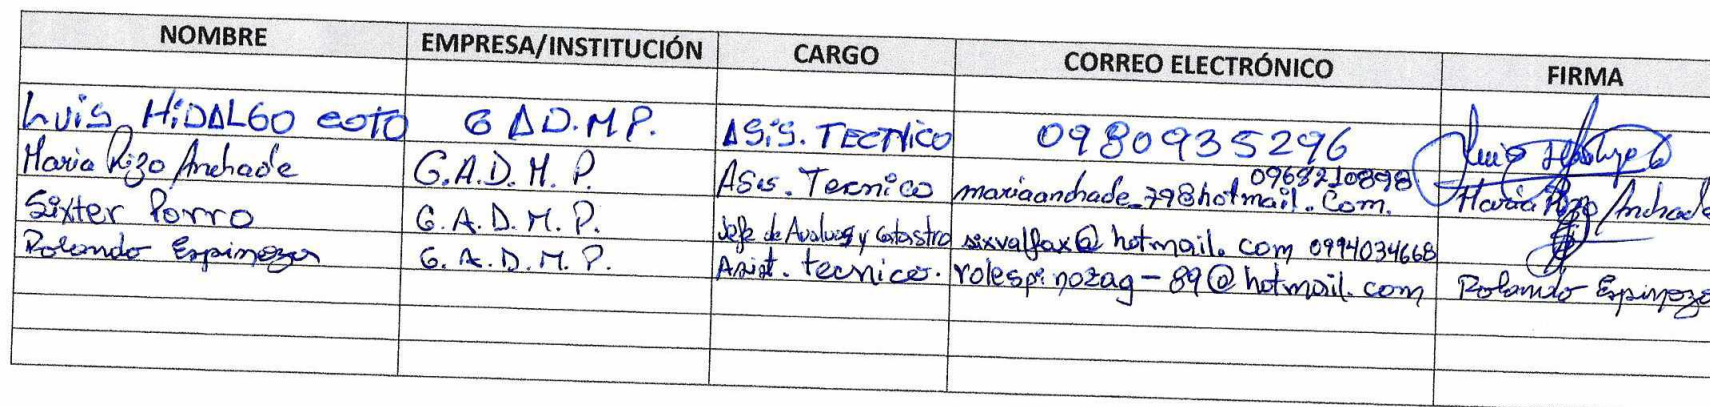 NOMBRE EMPRESA/INSTITUCIÓN CARGO CORREO ELECTRÓNICO FIRMA
Luis HiDALGO soto G AD.MP. ASiS. TECNico 0980935296
Maria Rizo Andrade G.A.D.M.P. ASis. Tecnico mariaandrade_798hotmail.Com. 0968210898 Maria Rizo Andrade
Sixter Porro G.A.D.M.P. Jefe de Avaluos y Catastro sixvalfax@hotmail.com 0994034668
Rolando Espinoza G.A.D.M.P. Asist. tecnico. rolespinozag-89@hotmail.com Rolando Espinoza